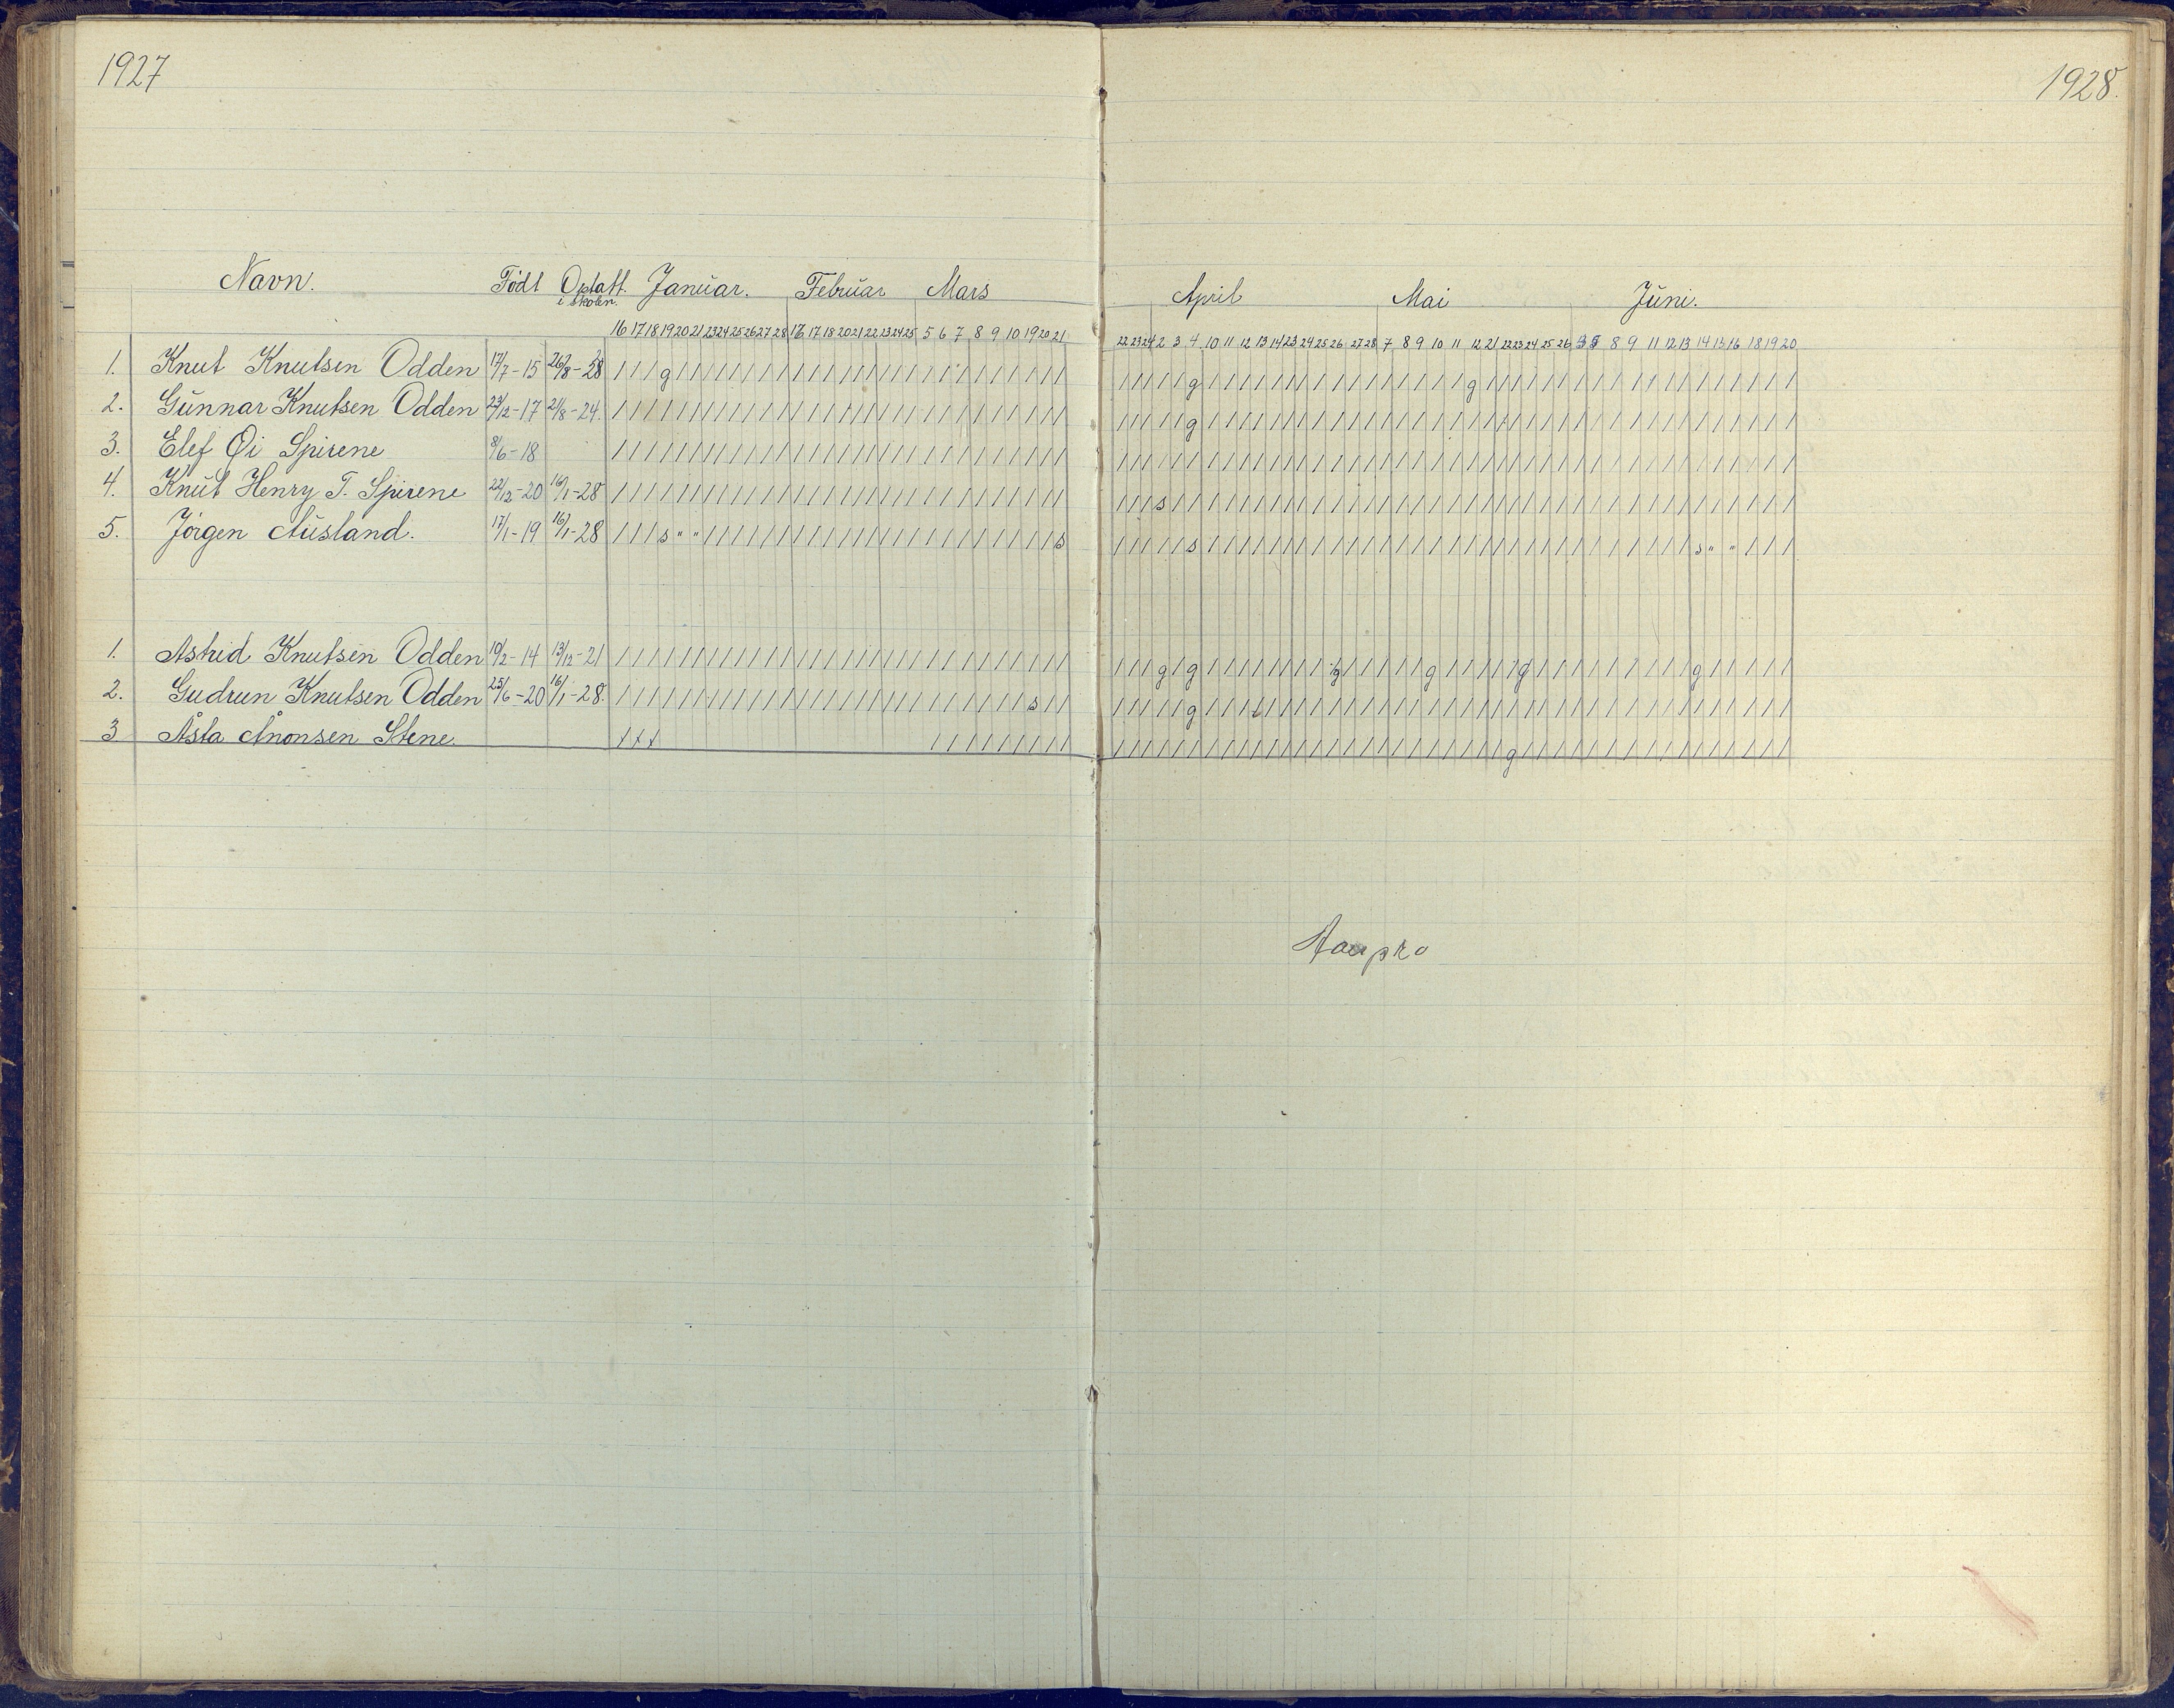 1927
1928.
Navn. Födt Optatt i skolen. Januar. Februar Mars
April Mai Juni.
16 17 18 19 20 21 23 24 25 26 27 28 16 17 18 20 21 22 23 24 25 5 6 7 8 9 10 19 20 21
22 23 24 2 3 4 10 11 12 13 14 23 24 25 26 27 28 7 8 9 10 11 12 21 22 23 24 25 26 8 9 11 12 13 14 15 16 18 19 20
1. Knut Knutsen Odden 17/7-15 / / / g / / / / / / / / / / / / / / / / / / / / / / / / / /
2. Gunnar Knutsen Odden 23/12-17 21/8-24. / / / / / / / / / / / / / / / / / / / / / / / / / / / / / /
3. Elef Øi Spirene 8/6-18 / / / / / / / / / / / / / / / / / / / / / / / / / / / / / /
4. Knut Henry T. Spirene 22/12-20 16/1-28 / / / / / / / / / / / / / / / / / / / / / / / / / / / / / /
5. Jörgen Ausland. 17/1-19 16/1-28 / / / s " " / / / / / / / / / / / / / / / / / / / / / / / s
1. Astrid Knutsen Odden 10/2-14 13/12-21 / / / / / / / / / / / / / / / / / / / / / / / / / / / / / /
2. Gudrun Knutsen Odden 25/6-20 16/1-28. / / / / / / / / / / / / / / / / / / / / / / / / / / / s / /
3 Åsta Ånonsen Stene. x x x / / / / / / / / /